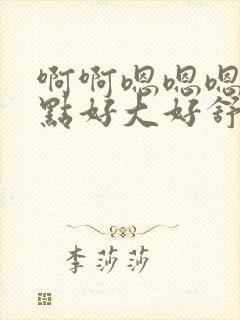 啊啊嗯嗯嗯
點好大好舒
李莎莎